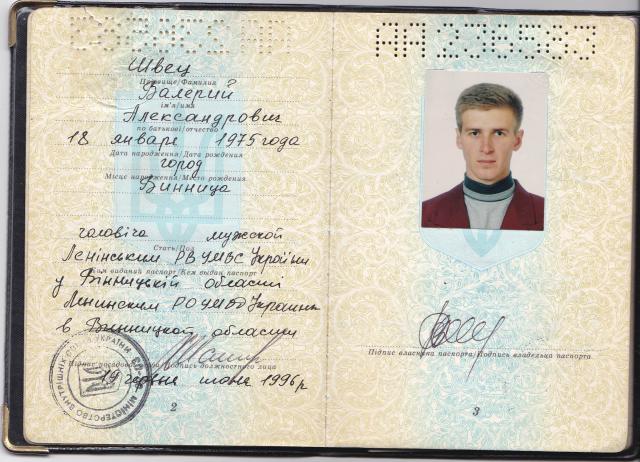 Швец
Прізвище/Фамилия
Валерий
ім'я/имя
Александрович
по батькові/отчество
18 января 1975 года
Дата народження/Дата рождения
город
Місце народження/Место рождения
Винница
чоловіча мужской
Стать/Пол
Ленінським РВ УМВС України
Ким виданий паспорт/Кем выдан паспорт
у Вінницькій області
Ленинским РО УМВД Украины
в Винницкой области
Підпис посадової особи/Подпись должностного лица
19 червня 1996 р
МІНІСТЕРСТВО ВНУТРІШНІХ СПРАВ УКРАЇНИ
2
Підпис власника паспорта/Подпись владельца паспорта
3